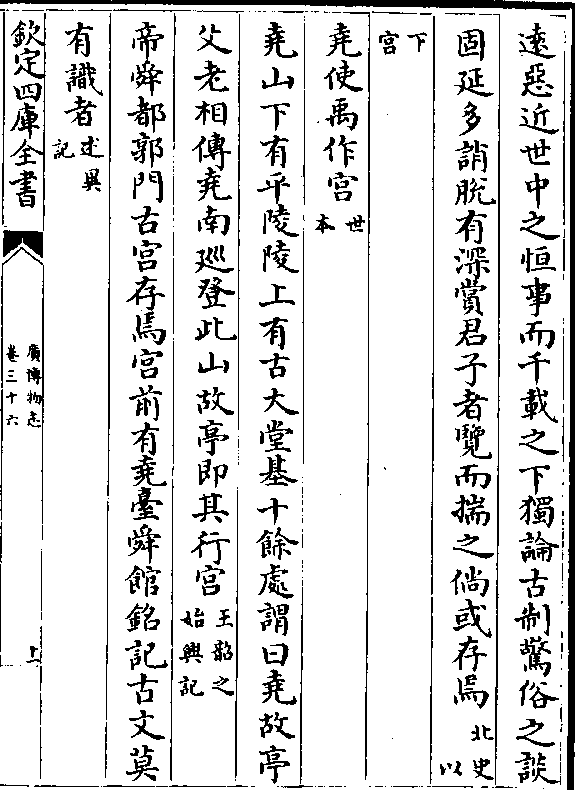 遠惡近世中之恒事而千載之下獨論古制驚俗之談
固延多誚脫有深賞君子者覽而揣之倘或存焉北史以
下宮
堯使禹作宮世本
堯山下有平陵陵上有古大堂基十餘處謂曰堯故亭
父老相傳堯南廵登此山故亭即其行宮王韶之始興記
帝舜都郭門古宮存焉宮前有堯臺舜館銘記古文莫
有識者述異記
欽定四庫全書
廣博物志
卷三十六